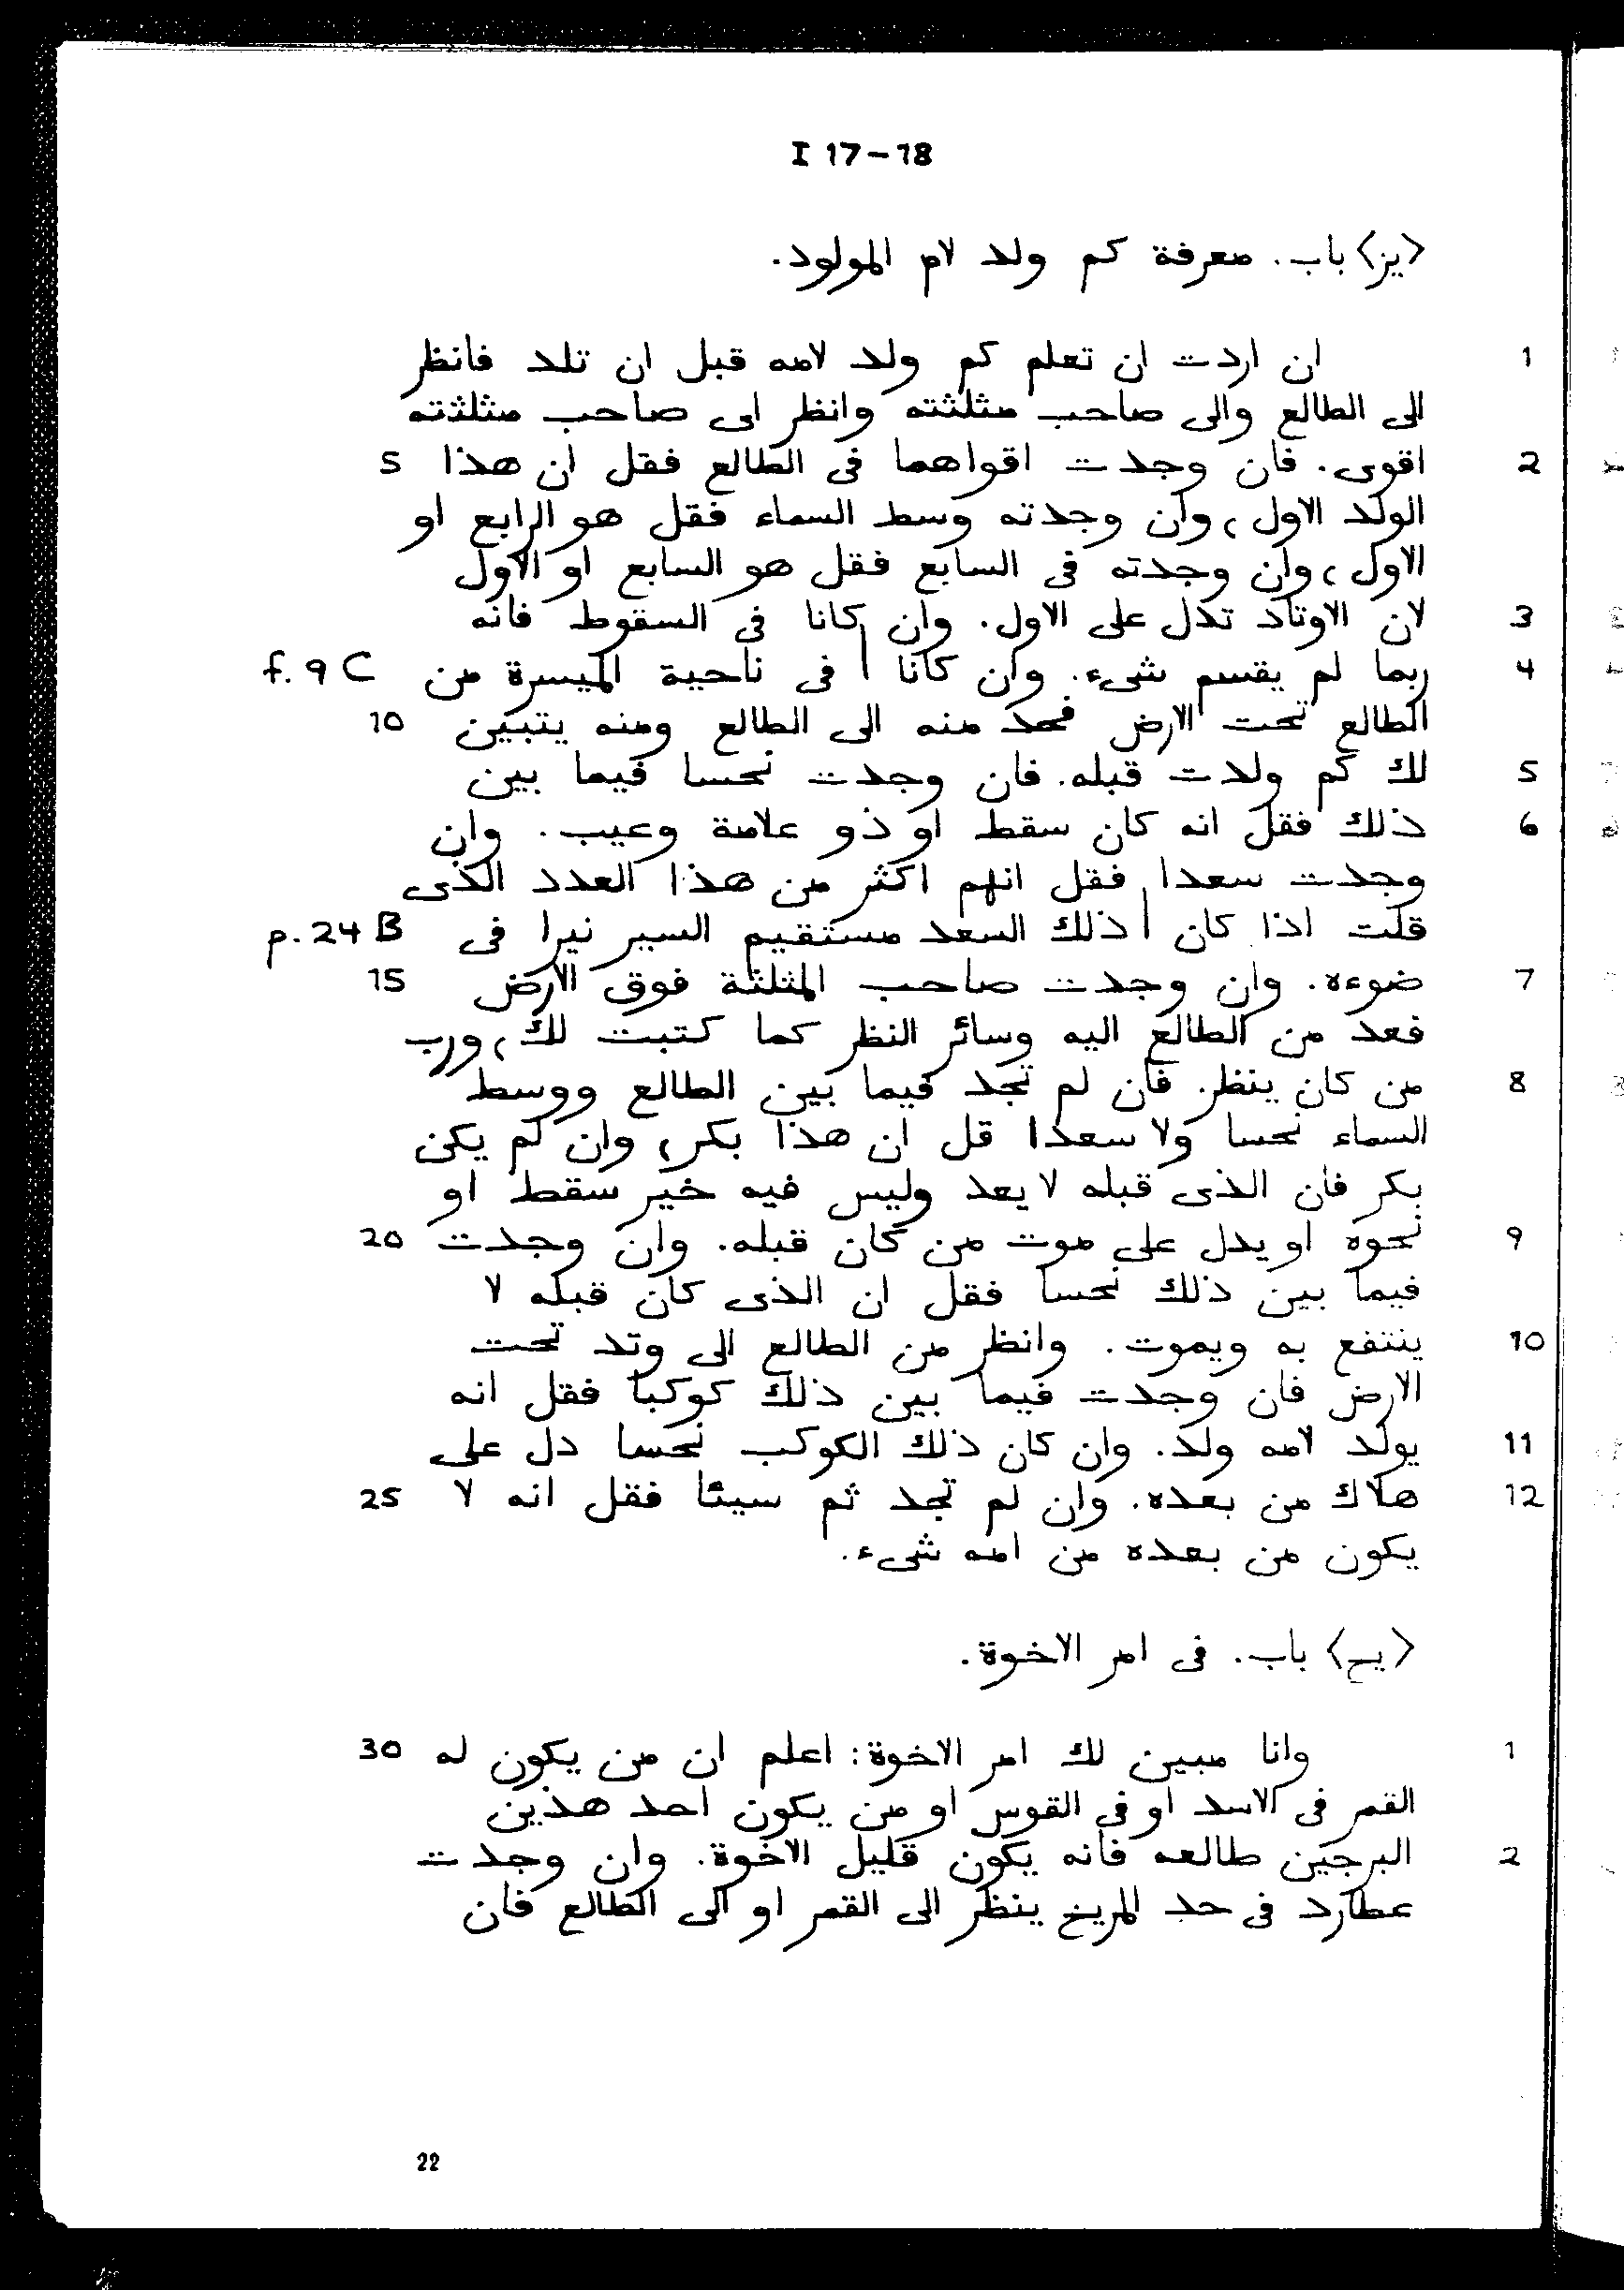 I 17-18
<يز> باب. معرفة كم ولد لام المولود.
1 ان اردت ان تعلم كم ولد لامه قبل ان تلد فانظر
الى الطالع والى صاحب مثلثته وانظر اى صاحب مثلثته
2 اقوى. فان وجدت اقواهما فى الطالع فقل ان هذا 5
الولد الاول، وان وجدته وسط السماء فقل هو الرابع او
الاول، وان وجدته فى السابع فقل هو السابع او الاول
3 لان الاوتاد تدل على الاول. وان كانا فى السقوط فانه
4 ربما لم يقسم شىء. وان كانا | فى ناحية الميسرة من f. 9 C
الطالع تحت الارض فحد منه الى الطالع ومنه يتبين 10
5 لك كم ولدت قبله. فان وجدت نحسا فيما بين
6 ذلك فقل انه كان سقط او ذو علامة وعيب. وان
وجدت سعدا فقل انهم اكثر من هذا العدد الذى
قلت اذا كان | ذلك السعد مستقيم السير نيرا فى p. 24 B
7 ضوءه. وان وجدت صاحب المثلثة فوق الارض 15
فعد من الطالع اليه وسائر النظر كما كتبت لك، ورب
8 من كان ينظر. فان لم تجد فيما بين الطالع ووسط
السماء نحسا ولا سعدا قل ان هذا بكر، وان لم يكن
بكر فان الذى قبله لا يعد وليس فيه خير سقط او
9 نحوه او يدل على موت من كان قبله. وان وجدت 20
فيما بين ذلك نحسا فقل ان الذى كان قبله لا
10 ينتفع به ويموت. وانظر من الطالع الى وتد تحت
الارض فان وجدت فيما بين ذلك كوكبا فقل انه
11 يولد لامه ولد. وان كان ذلك الكوكب نحسا دل على
12 هلاك من بعده. وان لم تجد ثم سيئا فقل انه لا 25
يكون من بعده من امه شىء.
<يح> باب. فى امر الاخوة.
1 وانا مبين لك امر الاخوة: اعلم ان من يكون له 30
القمر فى الاسد او فى القوس او من يكون احد هذين
2 البرجين طالعه فانه يكون قليل الاخوة. وان وجدت
عطارد فى حد المريخ ينظر الى القمر او الى الطالع فان
22